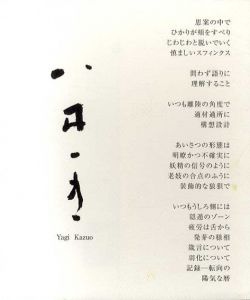 思案の中で
ひかりが頬をすべり
じわじわと脱いでいく
慎ましいスフィンクス
問わず語りに
理解すること
いつも離陸の角度で
適材適所に
構想設計
あいさつの形態は
明瞭かつ不確実に
妖精の信号のように
老妓の合点のふうに
装飾的な狼狽で
いつもうしろ側には
隠遁のゾーン
疲労は舌から
発芽の様相
箴言について
弱化について
記録―転向の
陽気な暦
Yagi Kazuo